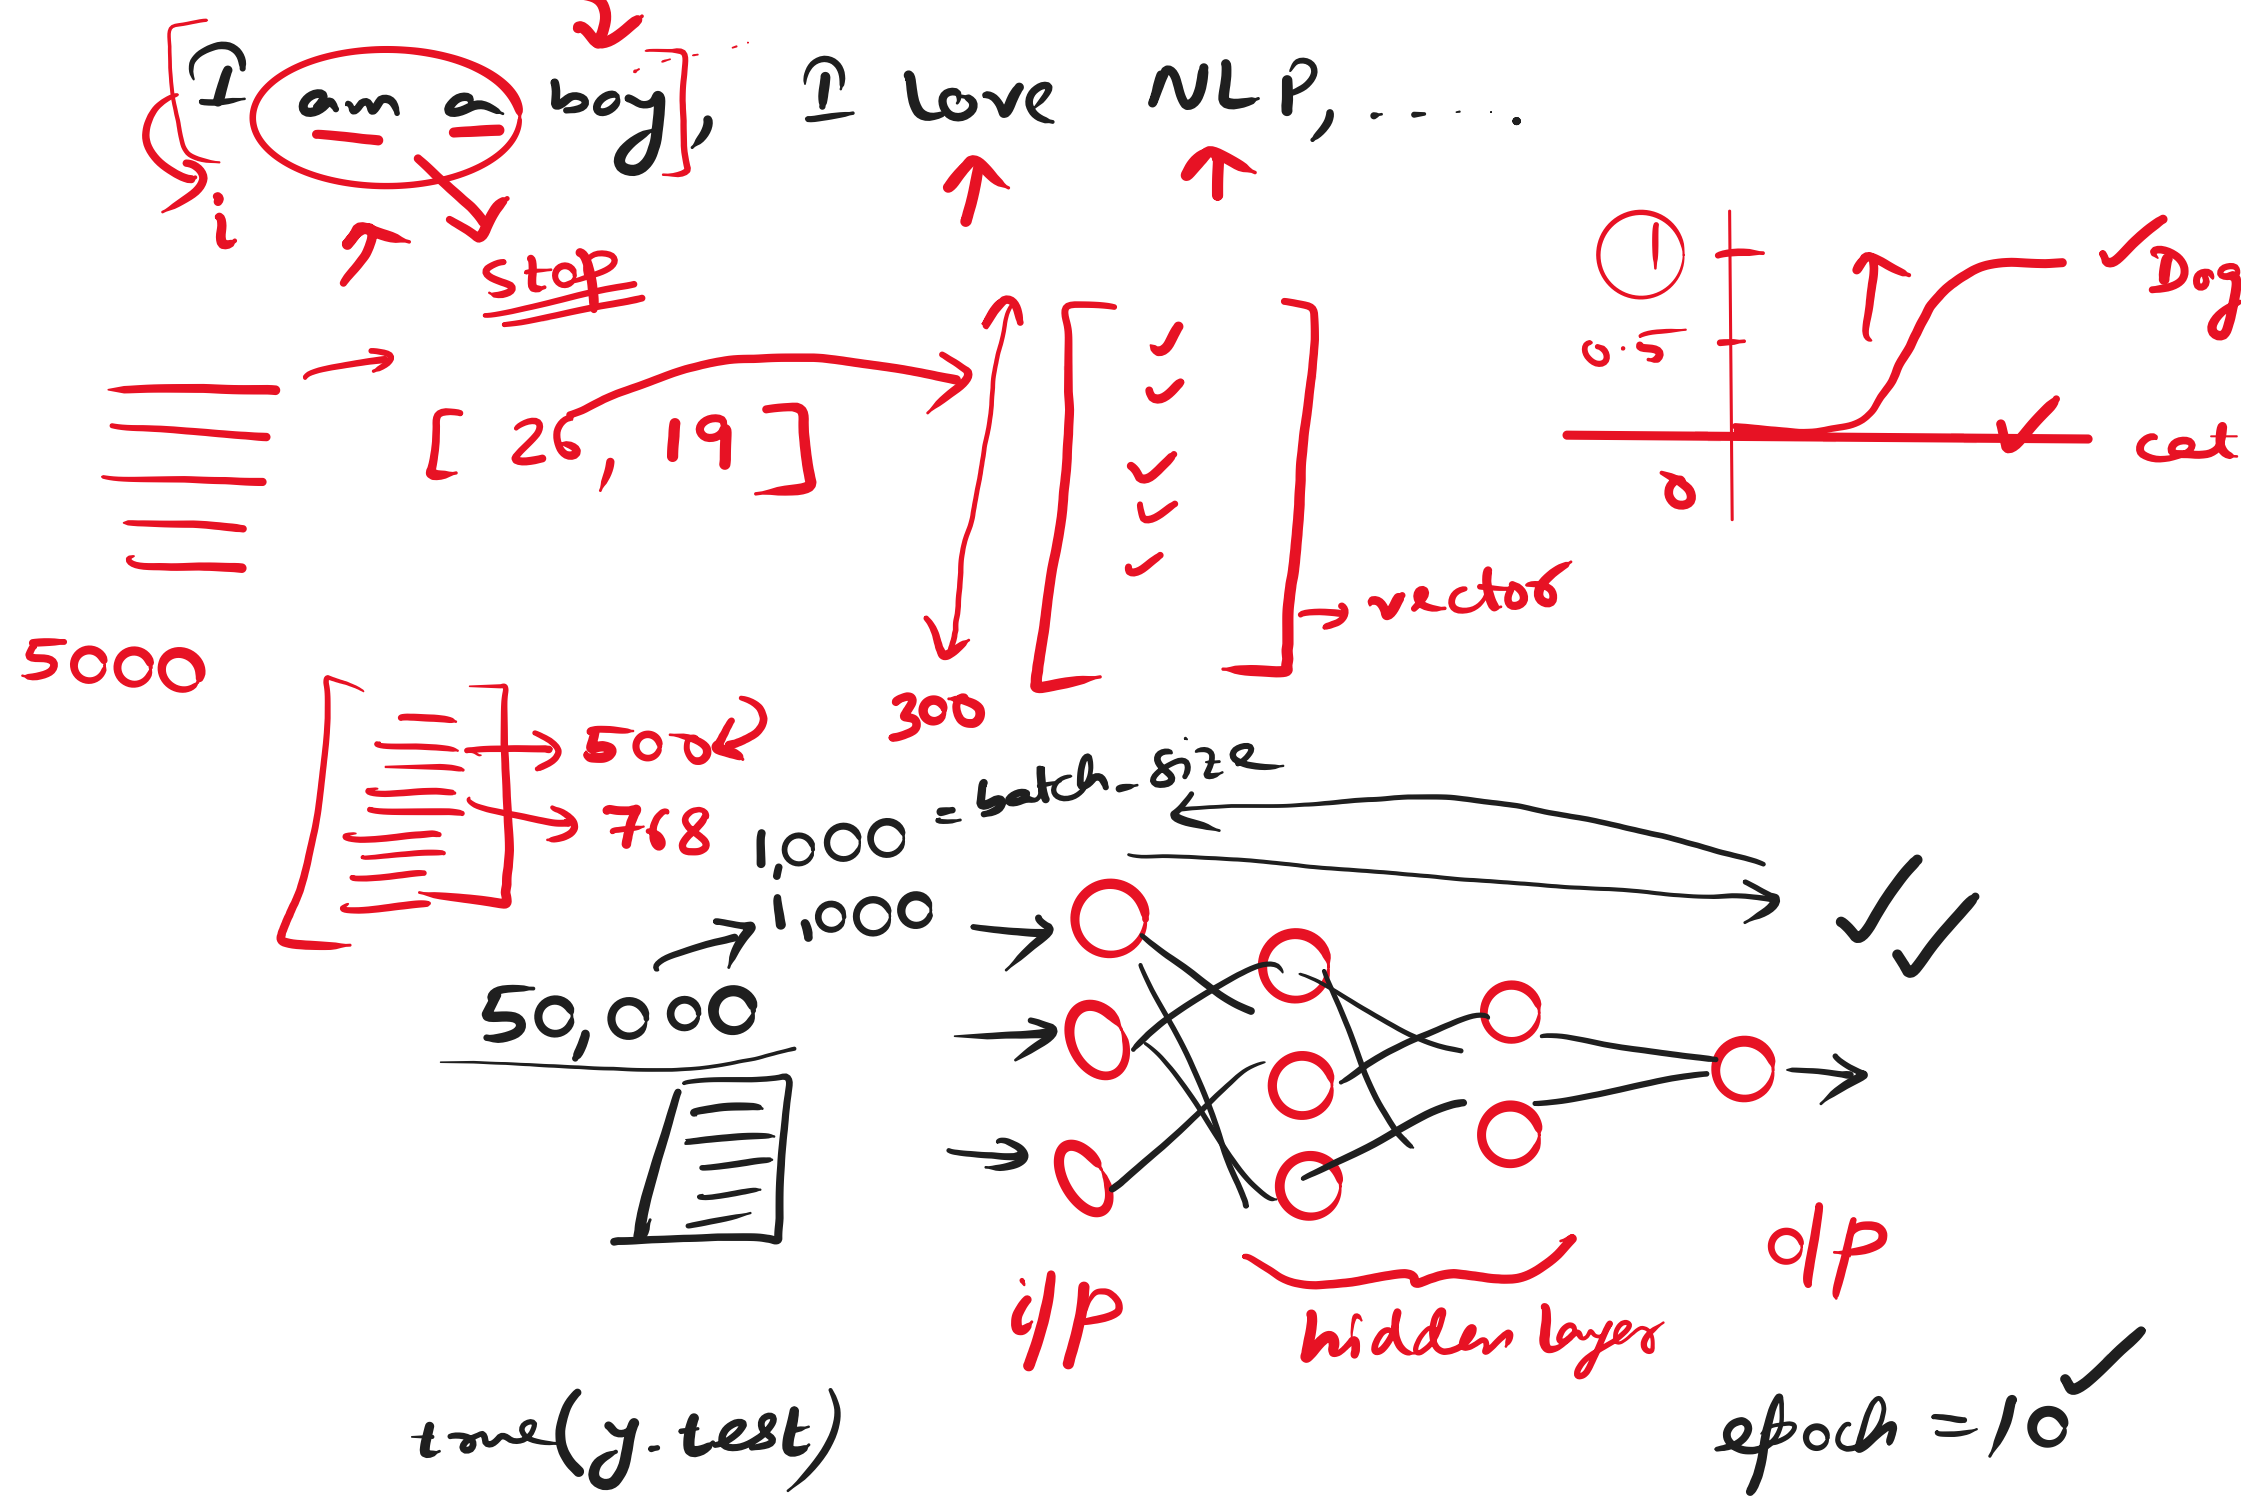 I am a boy, I love NLP, .....
i
stop
1
0.5
0
Dog
cat
[ 26, 19 ]
vector
5000
300
500
768
1,000 = batch_size
1,000
50,000
i/p
hidden layer
o/p
true(y.test)
epoch = 10